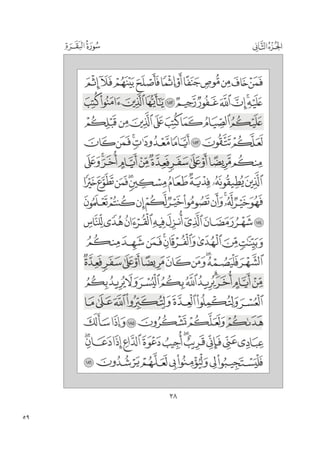 الجزء الثاني
سورة البقرة
فمن خاف من موص جنفا أو إثما فأصلح بينهم فلا إثم
عليه إن الله غفور رحيم ١٨٢ يأيها الذين ءامنوا كتب
عليكم الصيام كما كتب على الذين من قبلكم
لعلكم تتقون ١٨٣ أياما معدودات فمن كان
منكم مريضا أو على سفر فعدة من أيام أخر وعلى
الذين يطيقونه فدية طعام مسكين فمن تطوع خيرا
فهو خير له وأن تصوموا خير لكم إن كنتم تعلمون
١٨٤ شهر رمضان الذي أنزل فيه القرءان هدى للناس
وبينات من الهدى والفرقان فمن شهد منكم
الشهر فليصمه ومن كان مريضا أو على سفر فعدة
من أيام أخر يريد الله بكم اليسر ولا يريد بكم
العسر ولتكملوا العدة ولتكبروا الله على ما
هدىكم ولعلكم تشكرون ١٨٥ وإذا سألك
عبادي عني فإني قريب أجيب دعوة الداع إذا دعان
فليستجيبوا لي وليؤمنوا بي لعلهم يرشدون ١٨٦
٢٨
٥٩